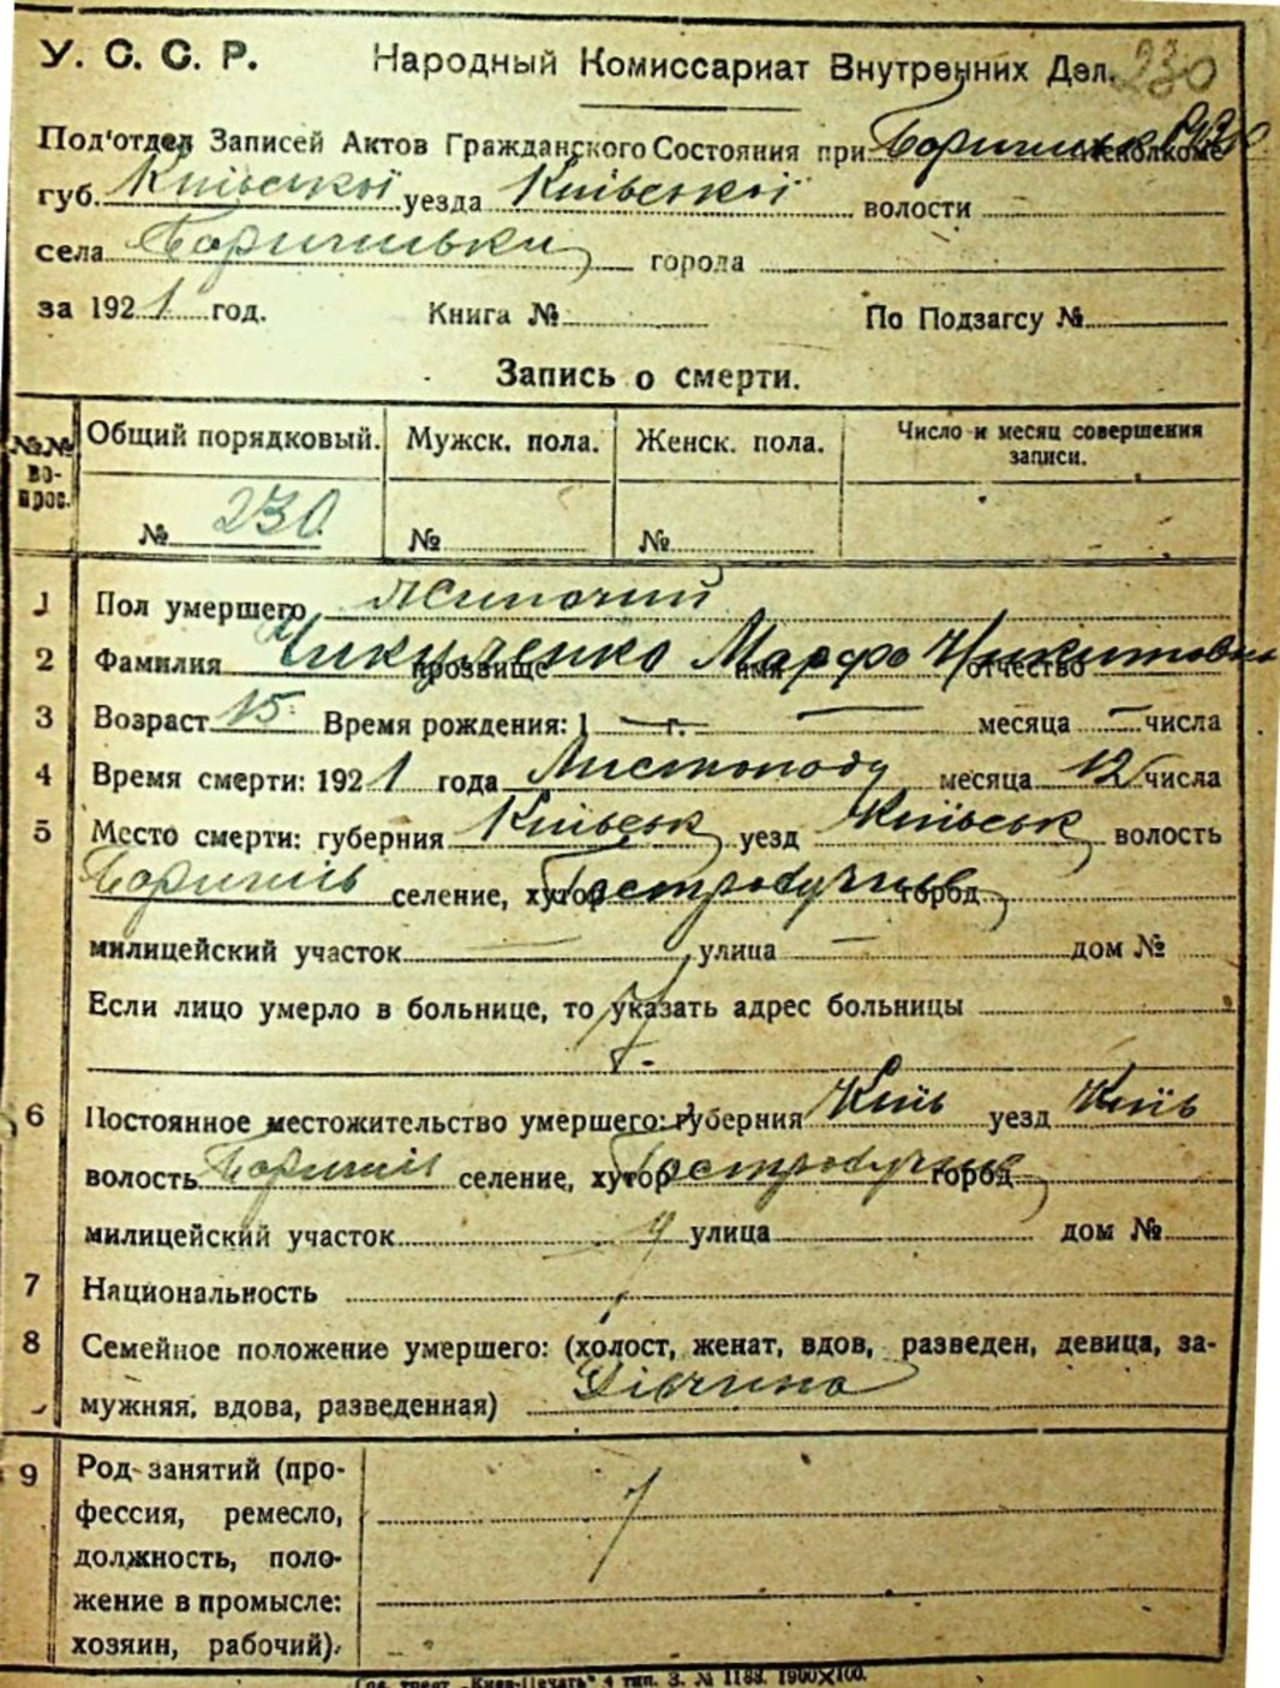 230
У. С. С. Р. Народный Комиссариат Внутренних Дел.
Под'отдел Записей Актов Гражданского Состояния при исполкоме
губ. Київської уезда Київської волости
села города
за 1921 год. Книга № По Подзагсу №
Запись о смерти.
№№ во-прос. Общий порядковый. Мужск. пола. Женск. пола. Число и месяц совершения записи.
№ 230 № №
1 Пол умершего Жиночий
2 Фамилия прозвище Марфа имя Никитовна отчество
3 Возраст 15 Время рождения: 1 — г. — месяца — числа
4 Время смерти: 1921 года Листопаду месяца 12 числа
5 Место смерти: губерния Київськ уезд Київськ волость
селение, хутор город
милицейский участок — улица — дом №
Если лицо умерло в больнице, то указать адрес больницы
6 Постоянное местожительство умершего: губерния Київ уезд Київ
волость селение, хутор город
милицейский участок улица дом №
7 Национальность
8 Семейное положение умершего: (холост, женат, вдов, разведен, девица, за-
мужняя, вдова, разведенная) Дівчина
9 Род занятий (про-
фессия, ремесло,
должность, поло-
жение в промысле:
хозяин, рабочий).
Гос. трест „Киев-Печать“ 4 тип. З. № 1188. 1900×100.